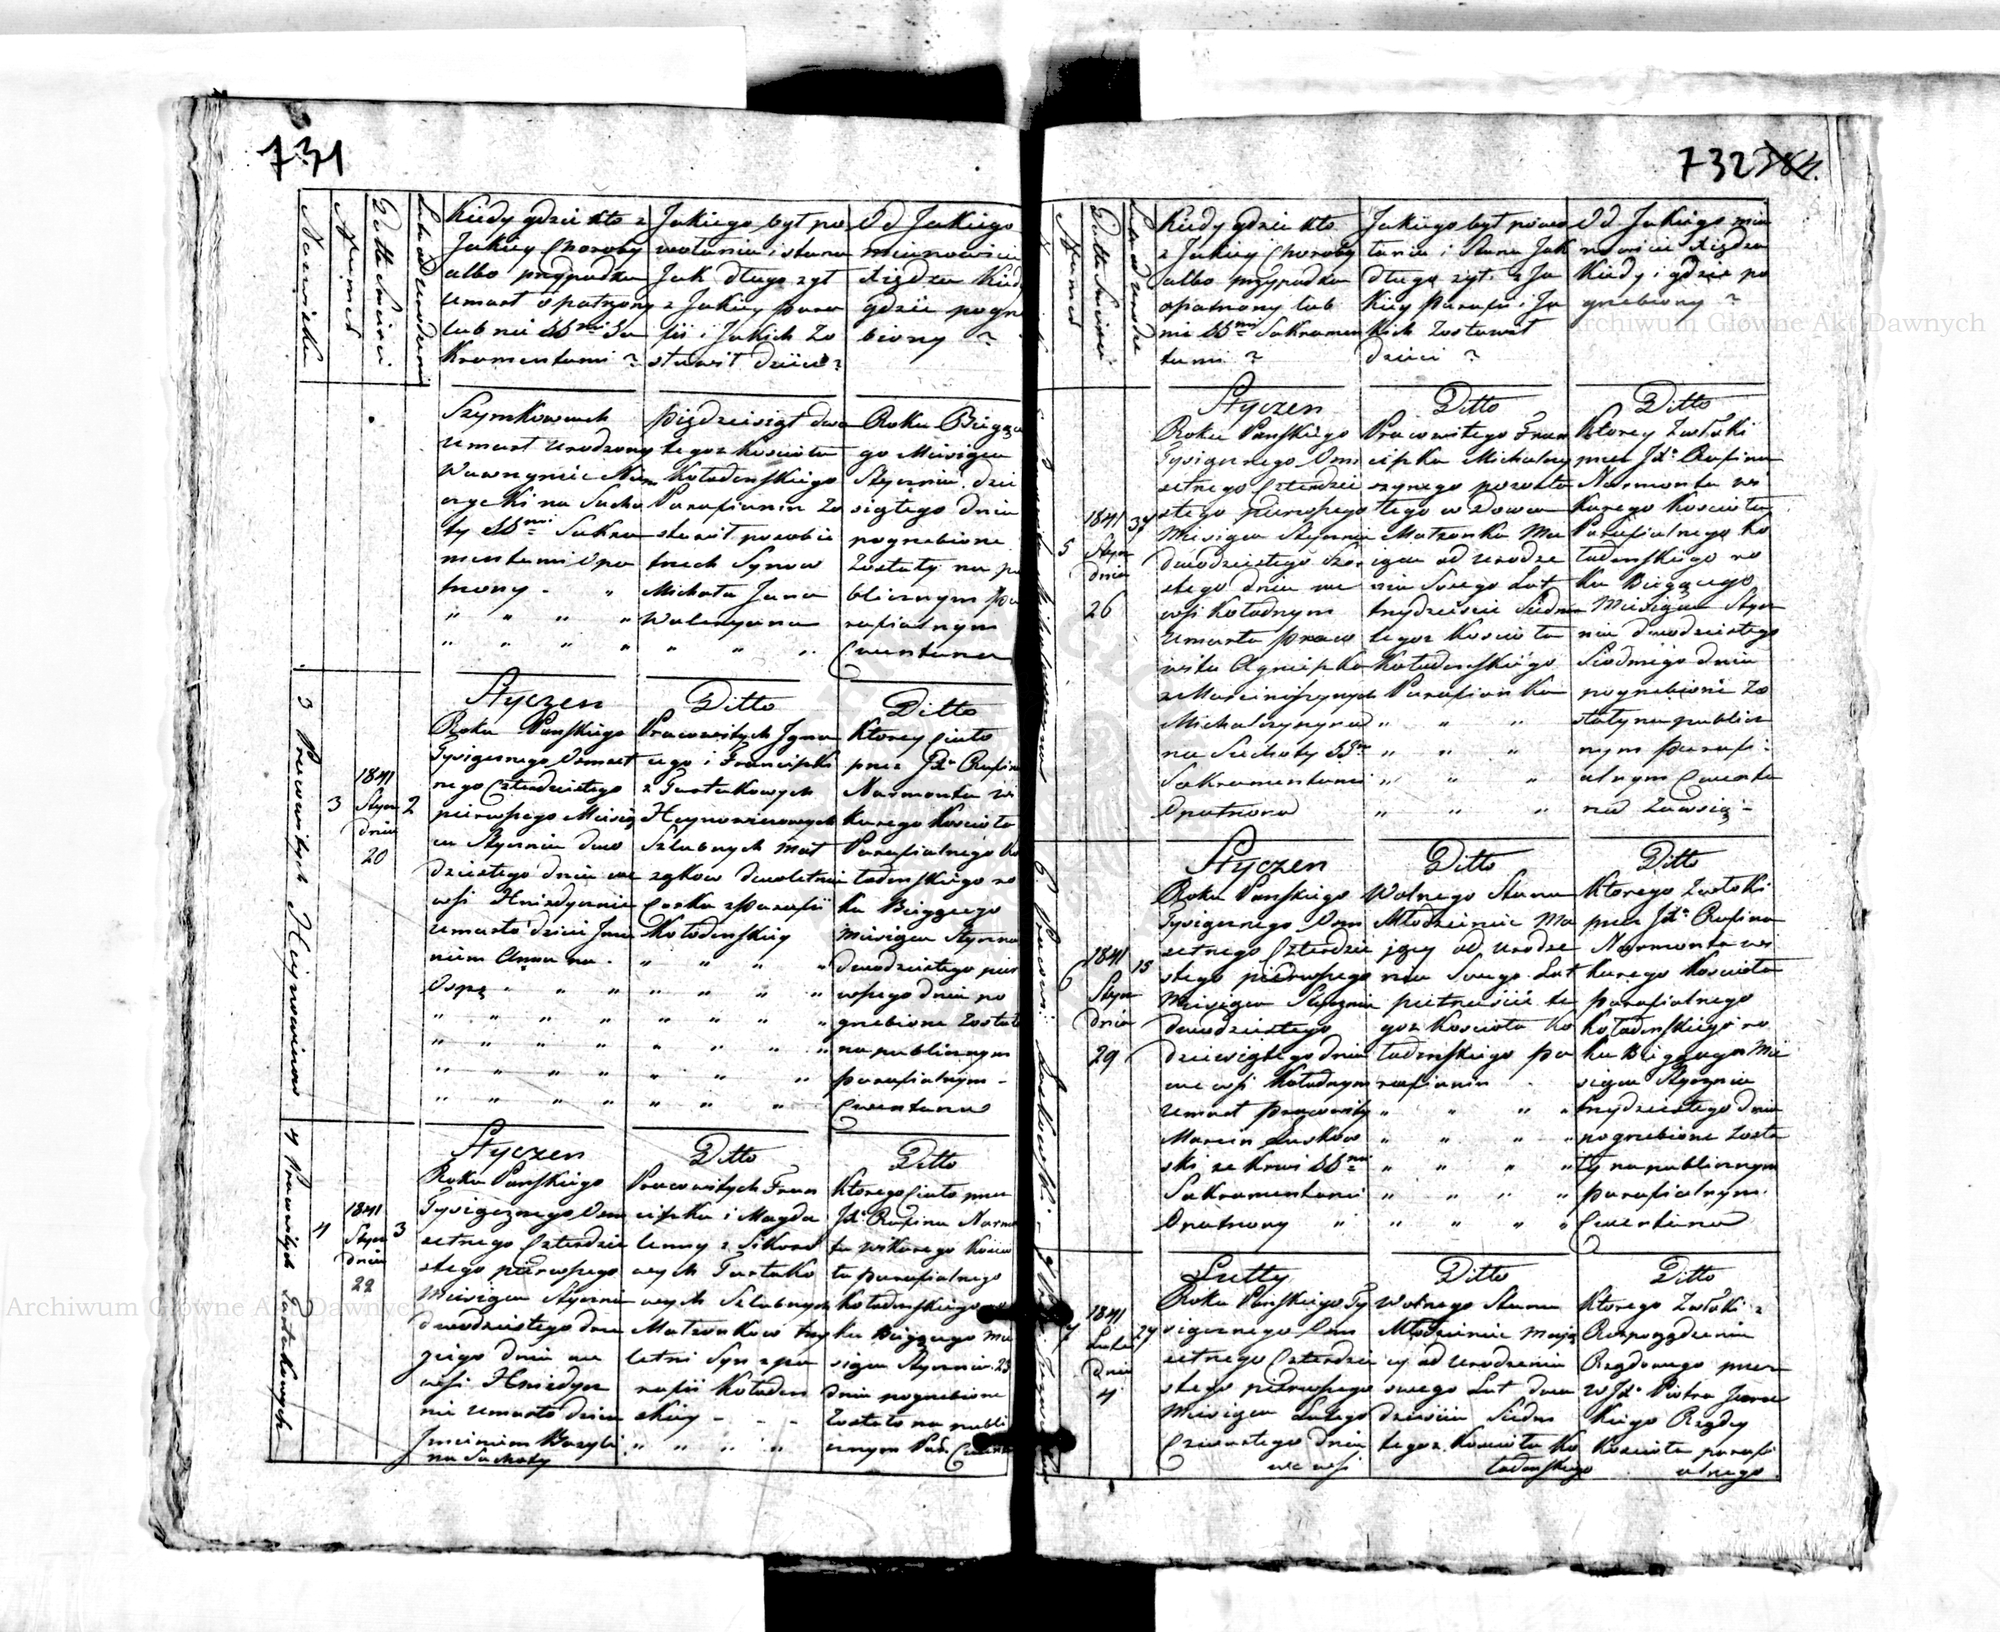 731
Nazwisko
Numer
Datta Smierci
Kiedy gdzie kto z
Jakiey Choroby
albo przypadku
umarł opatrzony
lub nie SSmi Sa
kramentami ?
Jakiego był po
wołania i stanu
Jak długo żył
z Jakiey para
fii i Jakich Zo
stawił dzieci ?
Od Jakiego
mianowicie
Xiędza Kiedy
gdzie pogrze
biony ?
Szymkowcach
umarł urodzony
Wawrzyniec
na Sucho
ty SSmi Sakra
mentami Opa
trzony
pięćdziesiąt dwa
tegoż Kościoła
Kołodenskiego
Parafianin Zo
stawił po sobie
trzech Synow
Michała Jana
Waleryana
Roku Bieżące
go Miesiąca
Stycznia dzie
siątego dnia
pogrzebione
Zostały na pu
blicznym pa
rafialnym
Cmentarzu
3
3
1841
Stycz
dnia
20
2
Styczen
Roku Pańskiego
Tysiącznego Osmset
nego Czterdziestego
pierwszego Miesią
ca Stycznia dwu
dziestego dnia we
wsi Hniedycznie
umarło dzieci Jmie
niem Anna na
Ospę
Ditto
Pracowitych Jgna
cego i Franciszki
z Gurlakowych
Heynowiczowych
Szlubnych Mał
żąkow dwuletnia
Corka z Parafii
Kołodenskiey
Ditto
Ktorey Ciało
przez Jdo Rufina
Narmonta Wi
karego Kościoła
Parafialnego Ko
łodenskiego ro
ku Bieżącego
Miesiąca Stycznia
dwudziestego pier
wszego dnia po
grzebione Zostało
na publicznym
parafialnym
Cmentarzu
4
4
1841
Stycz
dnia
22
3
Styczen
Roku Pańskiego
Tysiącznego Osm
setnego Czterdzie
stego pierwszego
Miesiąca Stycznia
dwudziestego dru
giego dnia we
wsi Hniedycz
nie umarło dziecie
Jmieniem Bazyli
na Suchoty
Ditto
Pracowitych Fran
ciszka i Magda
leny z Sikors
Szlubnych
Małżonkow trzy
letni Syn z pa
rafii Kołoden
skiey
Ditto
Ktorego Ciało przez
Jdo Rufina Narmon
ta Wikarego Kościo
ła parafialnego
Kołodenskiego ro
ku Bieżącego Mie
siąca Stycznia 23
dnia pogrzebione
Zostało na publi
cznym Par. Cmen
732
Numer
Datta Smierci
Kiedy gdzie kto
z Jakiey Choroby
albo przypadku
opatrzony lub
nie SSmi Sakramen
tami ?
Jakiego był powo
łania i Stanu Jak
długo żył z Ja
kiey Parafii i Ja
kich Zostawił
dzieci ?
Od Jakiego mia
nowicie Xiędza
Kiedy i gdzie po
grzebiony ?
5
1841
Stycz
dnia
26
37
Styczen
Roku Pańskiego
Tysiącznego Osm
setnego Czterdzie
stego pierwszego
Miesiąca Stycznia
dwudziestego Szos
tego dnia we
wsi Kołodnym
umarła praco
wita Agnieszka
Michalczyszyna
na Suchoty SSmi
Sakramentami
Opatrzona
Ditto
Pracowitego Fran
ciszka Michalczy
szynego pozosta
łego wdowca
Małżonka Ma
iąca od urodze
nia Swego Lat
trzydzieście Siedm
tegoż Kościoła
Kołodenskiego
Parafianka
Ditto
Ktorey Zwłoki
przez Jdo Rufina
Narmonta wi
karego Kościoła
Parafialnego Ko
łodenskiego ro
ku Bieżącego
Miesiąca Stycz
nia dwudziestego
Siodmego dnia
pogrzebione Zo
stały na publicz
nym parafi
alnym Cmenta
rzu
6
1841
Stycz
dnia
29
15
Styczen
Roku Pańskiego
Tysiącznego Osm
setnego Czterdzie
stego pierwszego
Miesiąca Stycznia
dwudziestego
dziewiątego dnia
we wsi Kołodnym
umarł pracowity
Marcin Luskow
ski ze Krwi SSmi
Sakramentami
Opatrzony
Ditto
Wolnego Stanu
Młodzieniec Ma
jący od urodze
nia Swego Lat
pietnaście te
goż Kościoła Ko
łodenskiego pa
rafianin
Ditto
Ktorego Zwłoki
przez Jdo Rufina
Narmonta wi
karego Kościoła
parafialnego
Kołodenskiego ro
ku Bieżącego Mie
siąca Stycznia
trzydziestego dnia
pogrzebione Zosta
ły na publicznym
parafialnym
Cmentarzu
7
1841
Lutego
dnia
4
27
Lutty
Roku Pańskiego Ty
siącznego Osm
setnego Czterdzie
stego pierwszego
Miesiąca Lutego
Czwartego dnia
we wsi
Ditto
Wolnego Stanu
Młodzieniec mają
cy od urodzenia
swego Lat dwa
dzieście Siedm
tegoż Kościoła Ko
łodenskiego
Ditto
Ktorego Zwłoki z
Rozporządzenia
Rządowego przez
WJdo Piotra Jaro
ckiego Rządcy
Kościoła parafi
alnego
Archiwum Główne Akt Dawnych
Archiwum Główne Akt Dawnych